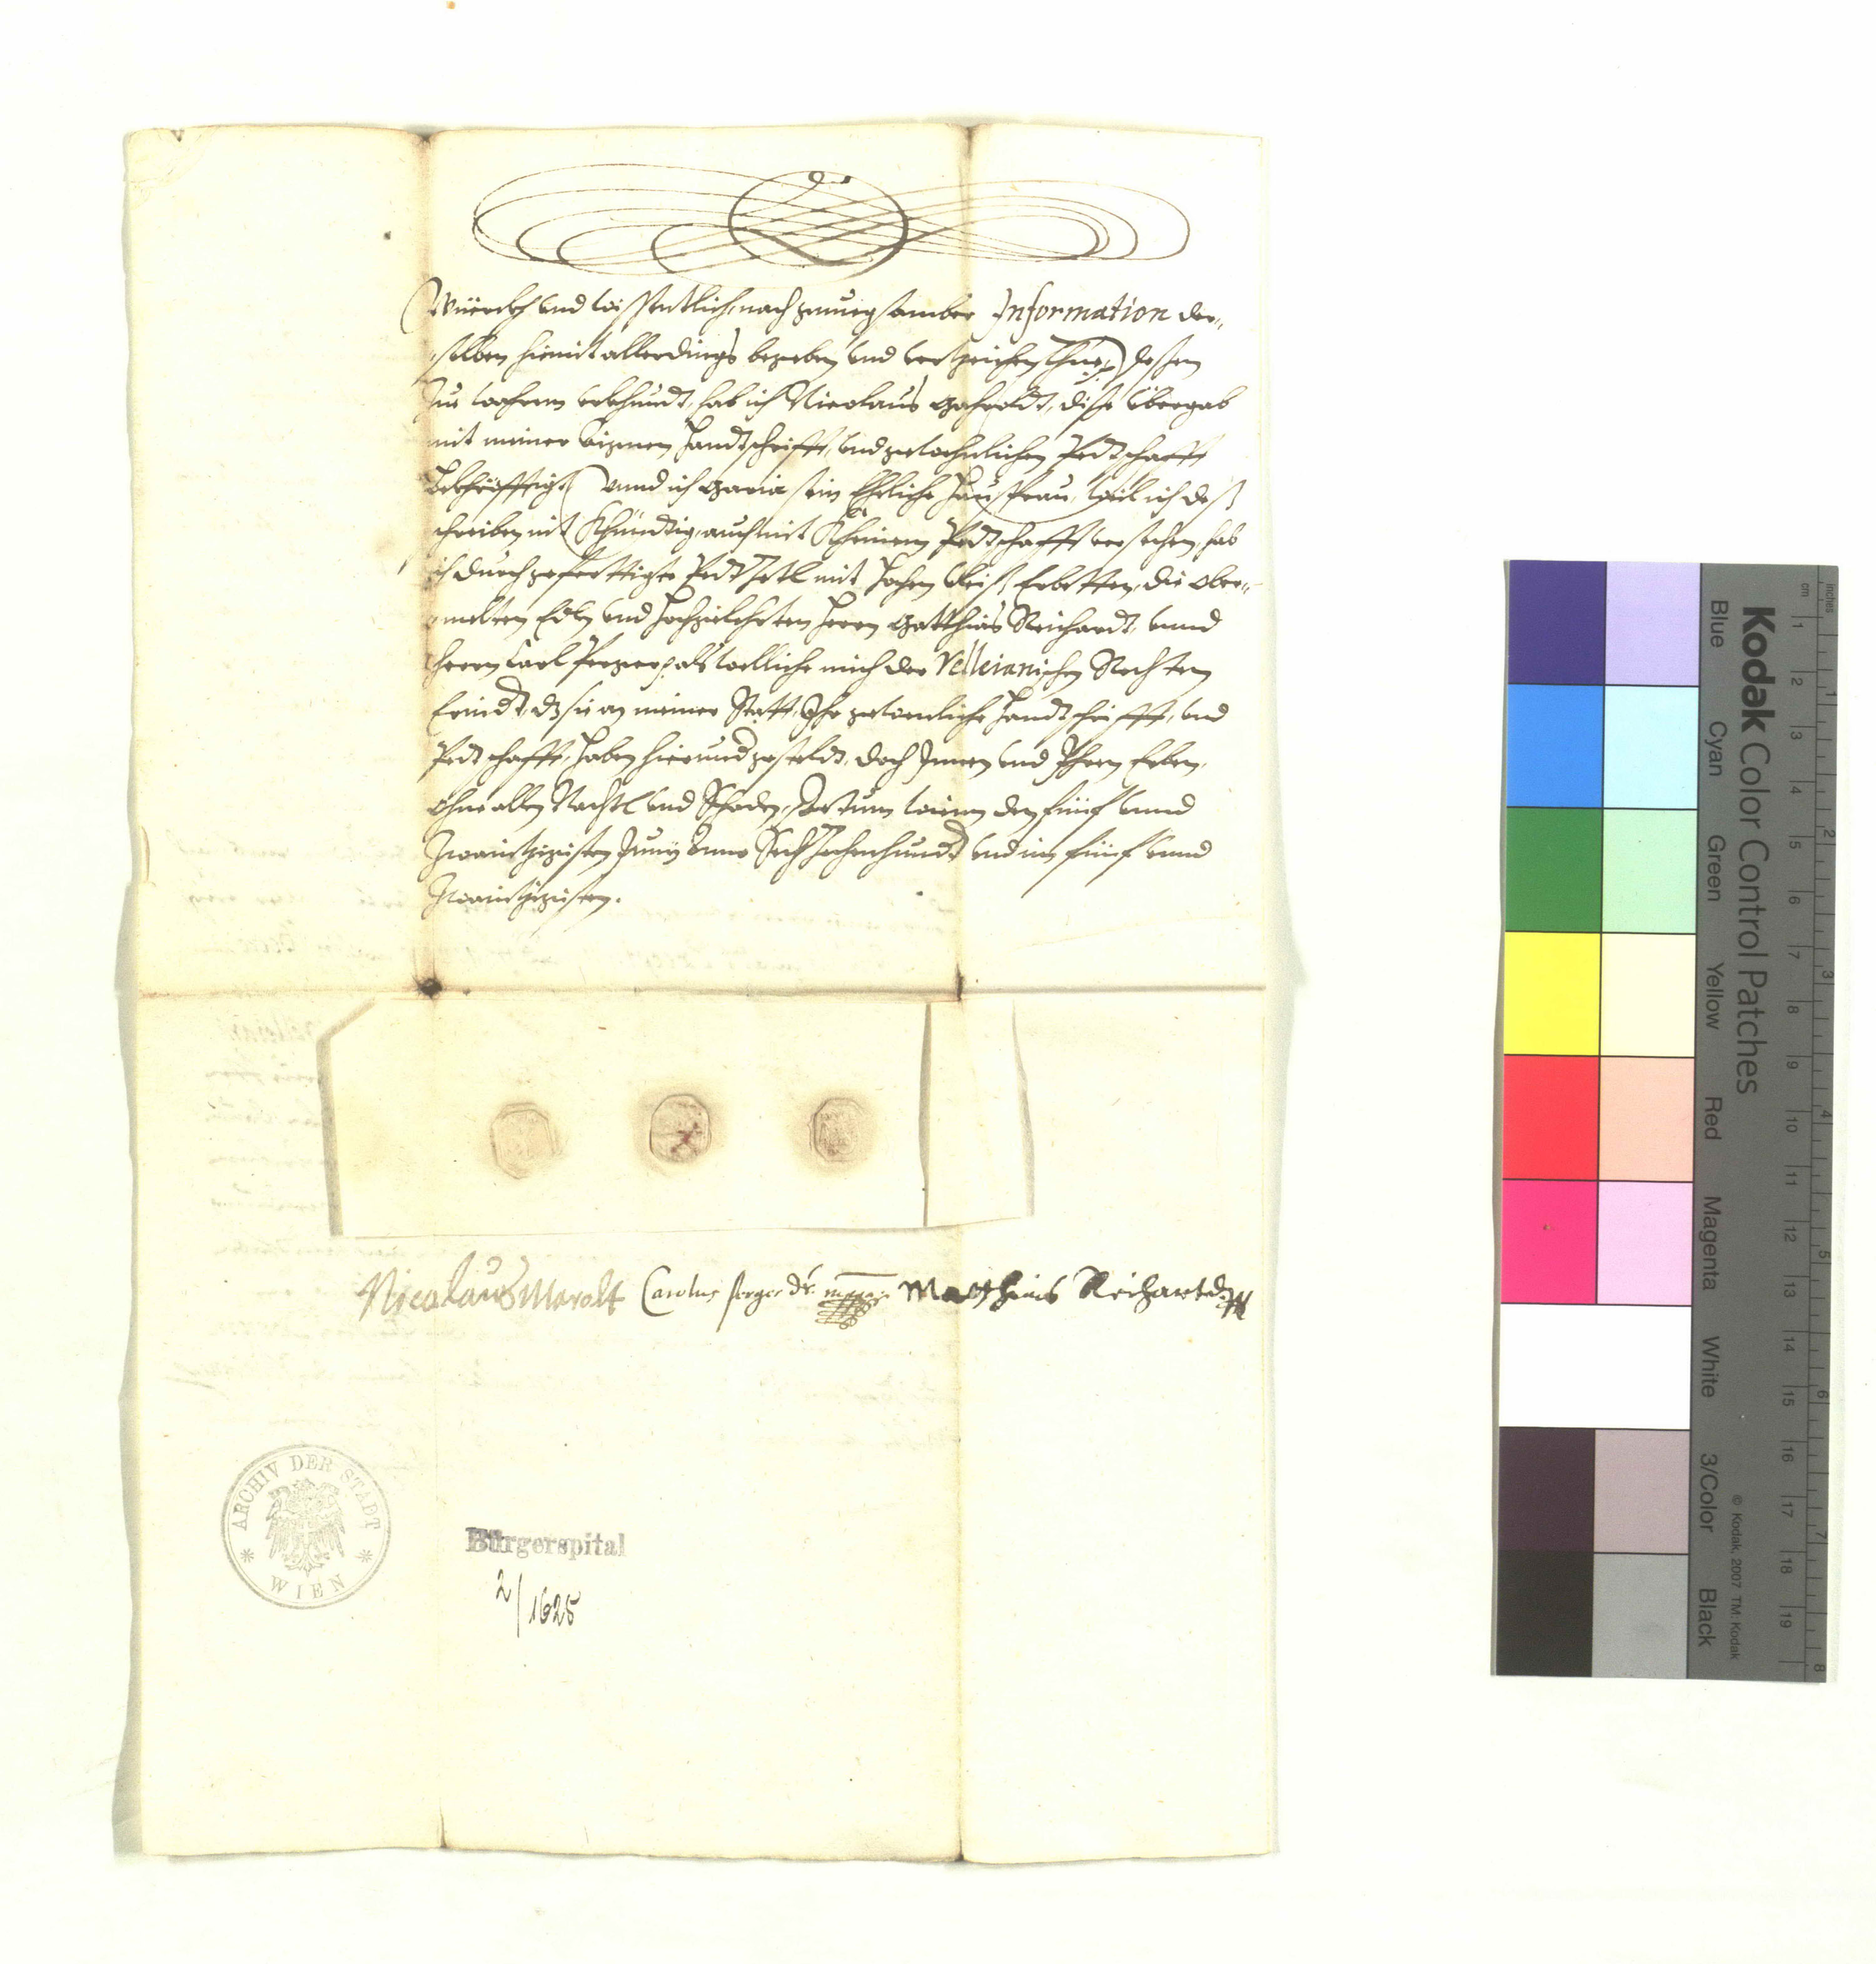 Würckh: und wissentlich, nach genuegsamber Information der„
selben hiemit allerdings begeben und verzeichen thue, dessen
Zur wahren urkhundt, hab ich Nicolaus Maroldt, dise Übergab
mit meiner aignen Handtschrifft, und gewohnlichen Pedtschafft
bekhräfftigt, unnd ich Maria sein Ehrliche Haußfrau, weil ich deß
schreiben nit khündig, auch mit kheinem Pedtschafft versehen, hab
ich durch gefertigte Pedt Zetl mit hohen vleiß Erbetten, die ober„
melten Edlen und Hochgelehrten Herrn Matthias Reichardt, unnd
Herrn Carl als welliche mich der Velleianischen Rechten
Erindt, dz sie an meiner Statt, Ihr gewonliche Handtschrifft, und
Pedtschafft, haben hierundgestelt, doch Innen und Ihren Erben,
ohne allen Nachtl und Schaden, Actum Wienn den fünf unnd
Zwainzigisten Juny Anno Sechzechenhundt und im fünf unnd
Zwainzigisten.
Nicolaus Marolt Carolus Dr. Matthias Reichardt
ARCHIV DER STADT
WIEN
Bürgerspital
2/1625
Kodak Color Control Patches
Blue Cyan Green Yellow Red Magenta White 3/Color Black
© Kodak, 2007 TM: Kodak
cm 1 2 3 4 5 6 7 8 9 10 11 12 13 14 15 16 17 18 19
inches 1 2 3 4 5 6 7 8